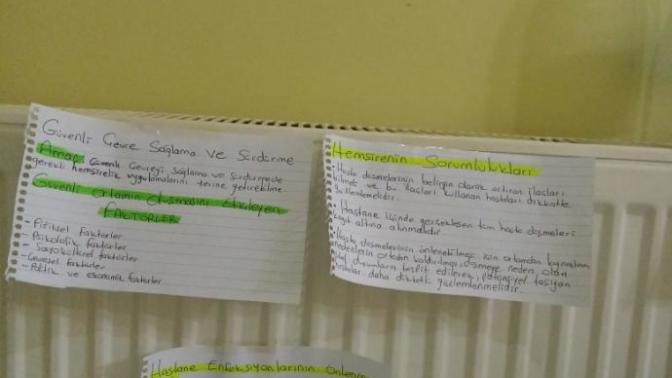 Güvenli Çevre Sağlama ve Sürdürme
Amaç: Güvenli Çevreyi sağlama ve sürdürmede
gerekli hemşirelik uygulamalarını yerine getirebilme.
Güvenli Ortamın Oluşmasını Etkileyen
FAKTÖRLER
- Fiziksel faktörler
- Psikolojik faktörler
- Sosyokültürel faktörler
- Çevresel faktörler
- Politik ve ekonomik faktörler
Hemşirenin Sorumlulukları
- Hasta düşmelerinin belirgin olarak artıran ilaçları
bilmeli ve bu ilaçları kullanan hastaları dikkatle
gözlemlemelidir.
- Hastane içinde gerçekleşen tüm hasta düşmeleri
kayıt altına alınmalıdır.
- Hasta düşmelerinin önlenebilmesi için ortamdan kaynaklanan
nedenlerin ortadan kaldırılması, düşmeye neden olan
durumların tespit edilerek, potansiyel taşıyan
hastalar daha dikkatli gözlemlenmelidir.
Hastane Enfeksiyonlarının